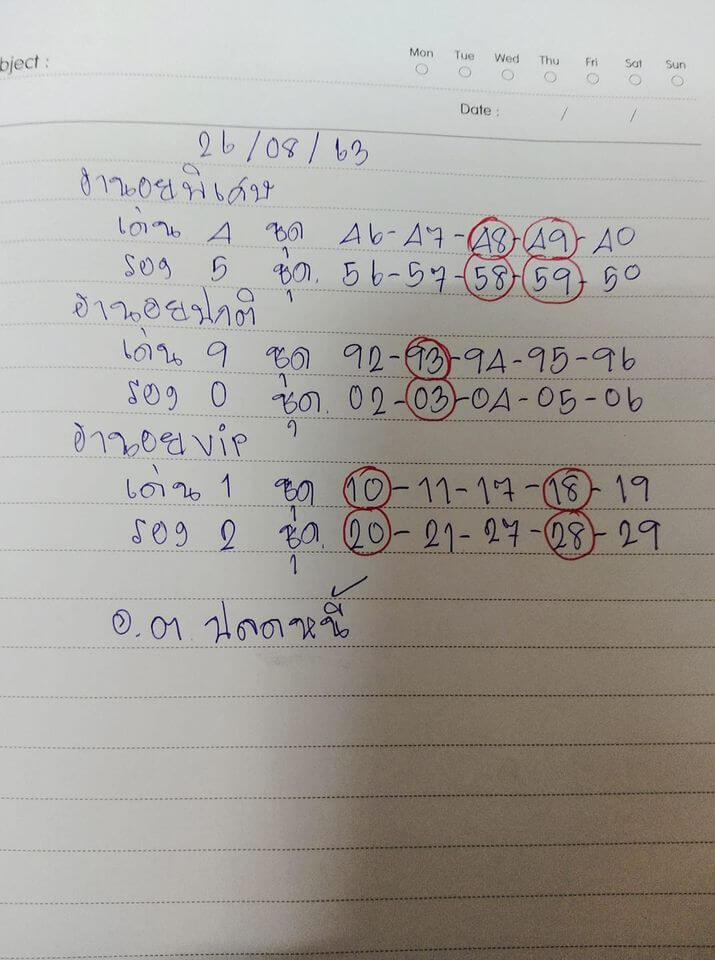 bject :
Mon Tue Wed Thu Fri Sat Sun
Date : / /
26/08/63
ฮานอยพิเศษ
เด่น 4 ชุด 46-47-48-49-40
รอง 5 ชุด. 56-57-58-59-50
ฮานอยปกติ
เด่น 9 ชุด 92-93-94-95-96
รอง 0 ชุด. 02-03-04-05-06
ฮานอยvip
เด่น 1 ชุด 10-11-17-18-19
รอง 2 ชุด. 20-21-27-28-29
อ.ต ปลดหนี้